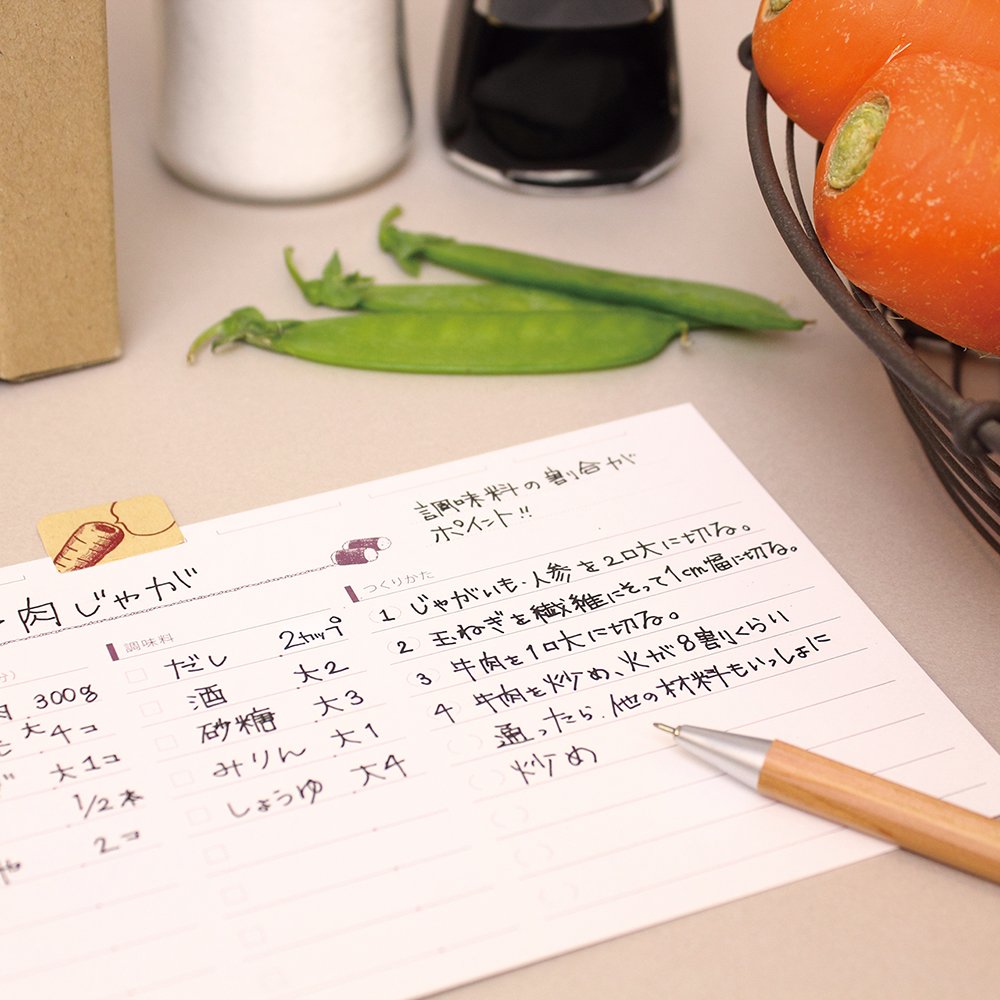 肉じゃが
調味料の割合が
ポイント!!
肉 300g
大4コ
大1コ
1/2本
2コ
調味料
だし 2カップ
酒 大2
砂糖 大3
みりん 大1
しょうゆ 大4
つくりかた
1 じゃがいも・人参を2口大に切る。
2 玉ねぎを繊維にそって1cm幅に切る。
3 牛肉を1口大に切る。
4 牛肉を炒め、火が8割りくらい
通ったら、他の材料もいっしょに
炒め